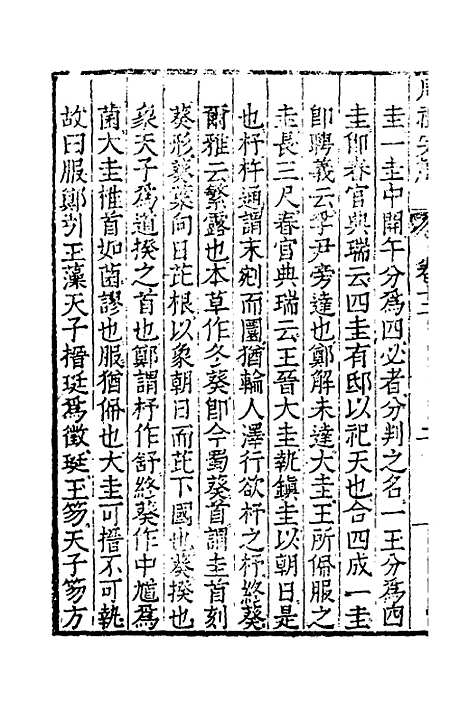 圭一圭中開午分爲四必者分判之名一王分爲四
圭仰春官典瑞云四圭有邸以祀天也合四成一圭
卽聘義云孚尹旁達也鄭解未達大圭王所佩服之
圭長三尺春官典瑞云王晉大圭執鎮圭以朝日是
也杼杵通謂末剡而圜猶輪人澤行欲杼之杼終葵
爾雅云繁露也本草作冬葵卽今蜀葵首謂圭首刻
葵形葵葉向日芘根以象朝日而芘下國也葵揆也
象天子爲道揆之首也鄭謂杼作舒終葵作中馗爲
菌大圭椎首如菌謬也服猶佩也大圭可搢不可執
故曰服鄭列王藻天子搢珽爲徵珽王笏天子笏方